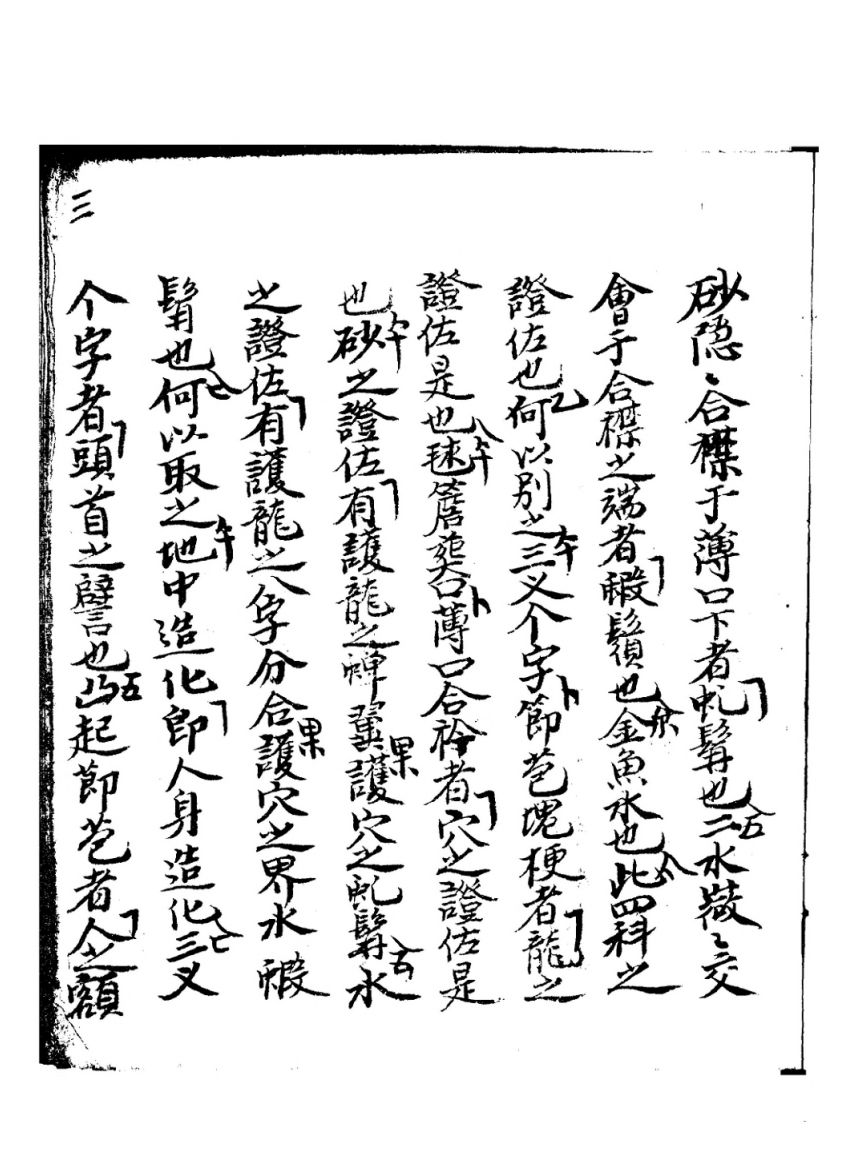 砂隱〻合襟于薄口下者虬髯也二水微〻交
會于合襟之端者蝦鬚也金魚水也此四科之
證佐也何以別之三义个字節苞塊梗者龍之
證佐是也毬簷葬口薄口合衿者穴之證佐是
也砂之證佐有護龍之蟬翼護穴之虬髯水
之證佐有護龍之八字分合護穴之界水蝦
髯也何以取之地中造化即人身造化三义
个字者頭首之譬也凸起節苞者人之額
三